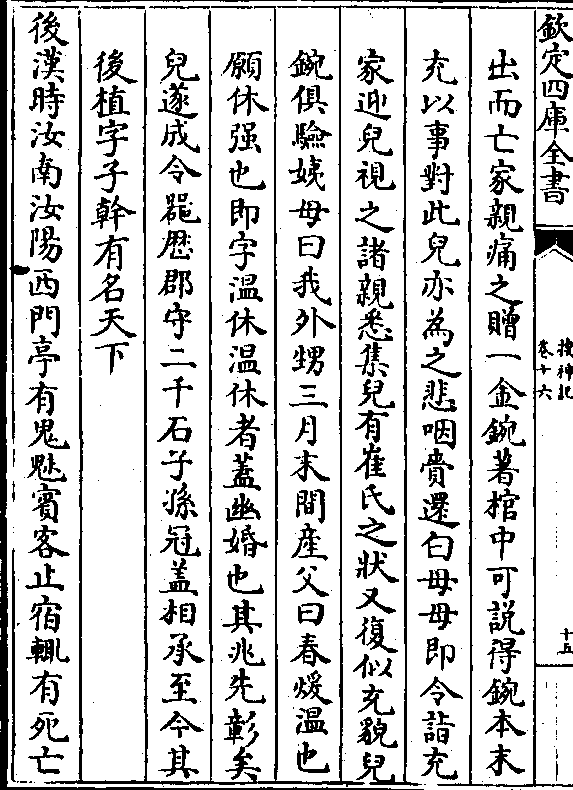 欽定四庫全書
搜神記
卷十六
十五
出而亡家親痛之贈一金鋺著棺中可説得鋺本末
充以事對此兒亦為之悲咽賫還白母母即令詣充
家迎兒視之諸親悉集兒有崔氏之狀又復似充貌兒
鋺俱驗姨母曰我外甥三月末間産父曰春煖温也
願休强也即字温休温休者蓋幽婚也其兆先彰矣
兒遂成令器歴郡守二千石子孫冠蓋相承至今其
後植字子幹有名天下
後漢時汝南汝陽西門亭有鬼魅賓客止宿輒有死亡